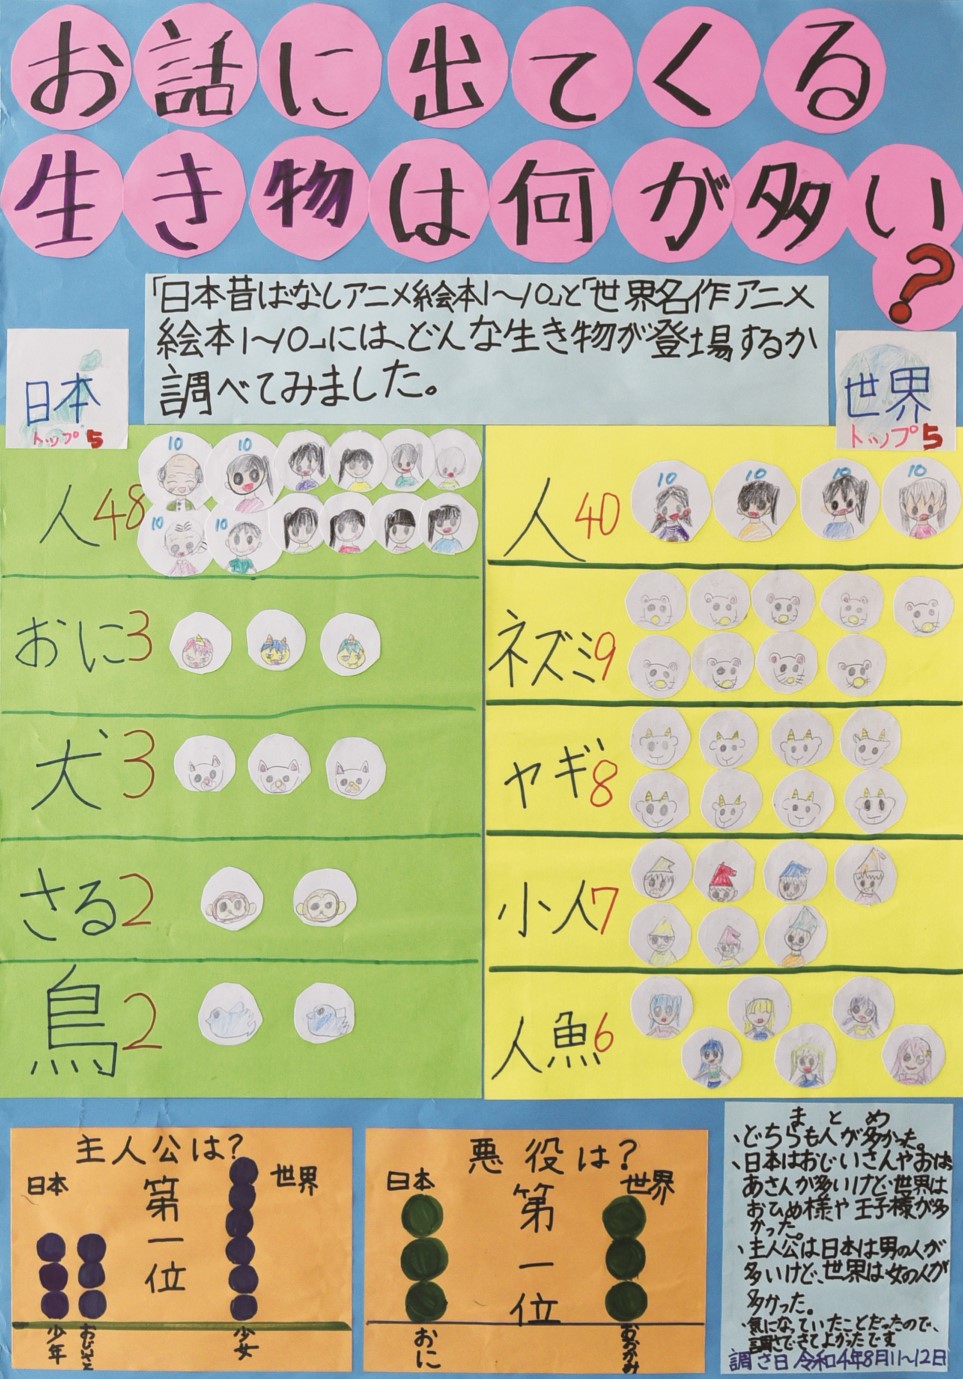 お話に出てくる
生き物は何が多い
?
「日本昔ばなしアニメ絵本1〜10」と「世界名作アニメ
絵本1〜10」には、どんな生き物が登場するか
調べてみました。
日本
トップ5
世界
トップ5
人48
10
10
10
10
おに3
犬3
さる2
鳥2
人40
10
10
10
10
ネズミ9
ヤギ8
小人7
人魚6
主人公は?
日本
第一位
世界
少年
おじいさん
少女
悪役は?
日本
第一位
世界
おに
おおかみ
まとめ
・どちらも人が多かった。
・日本はおじいさんやおば
あさんが多いけど、世界は
おひめ様や王子様が多
かった。
・主人公は日本は男の人が
多いけど、世界は女の人が
多かった。
・気になっていたことだったので、
調べてよかったです
調さ日 令和4年8月11〜12日